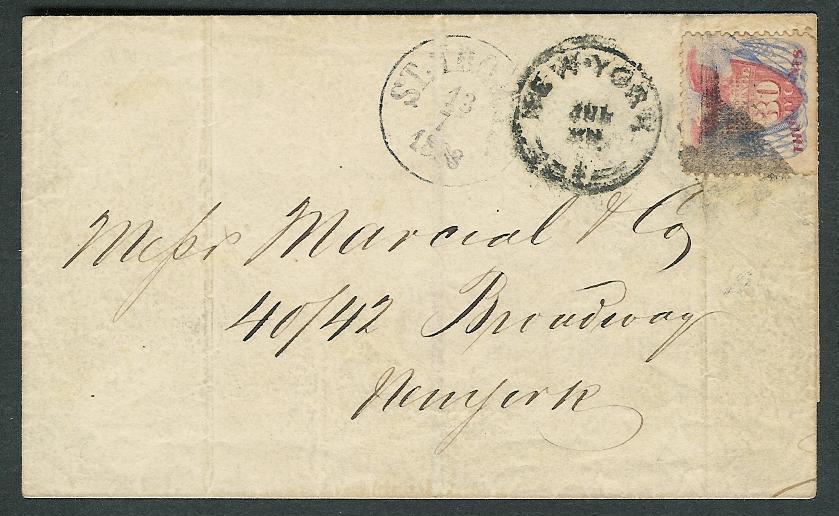 ST. THO
13
7
18
NEW-YORK
JUL
30
Messrs Marcial & Co
40/42 Broadway
Newyork